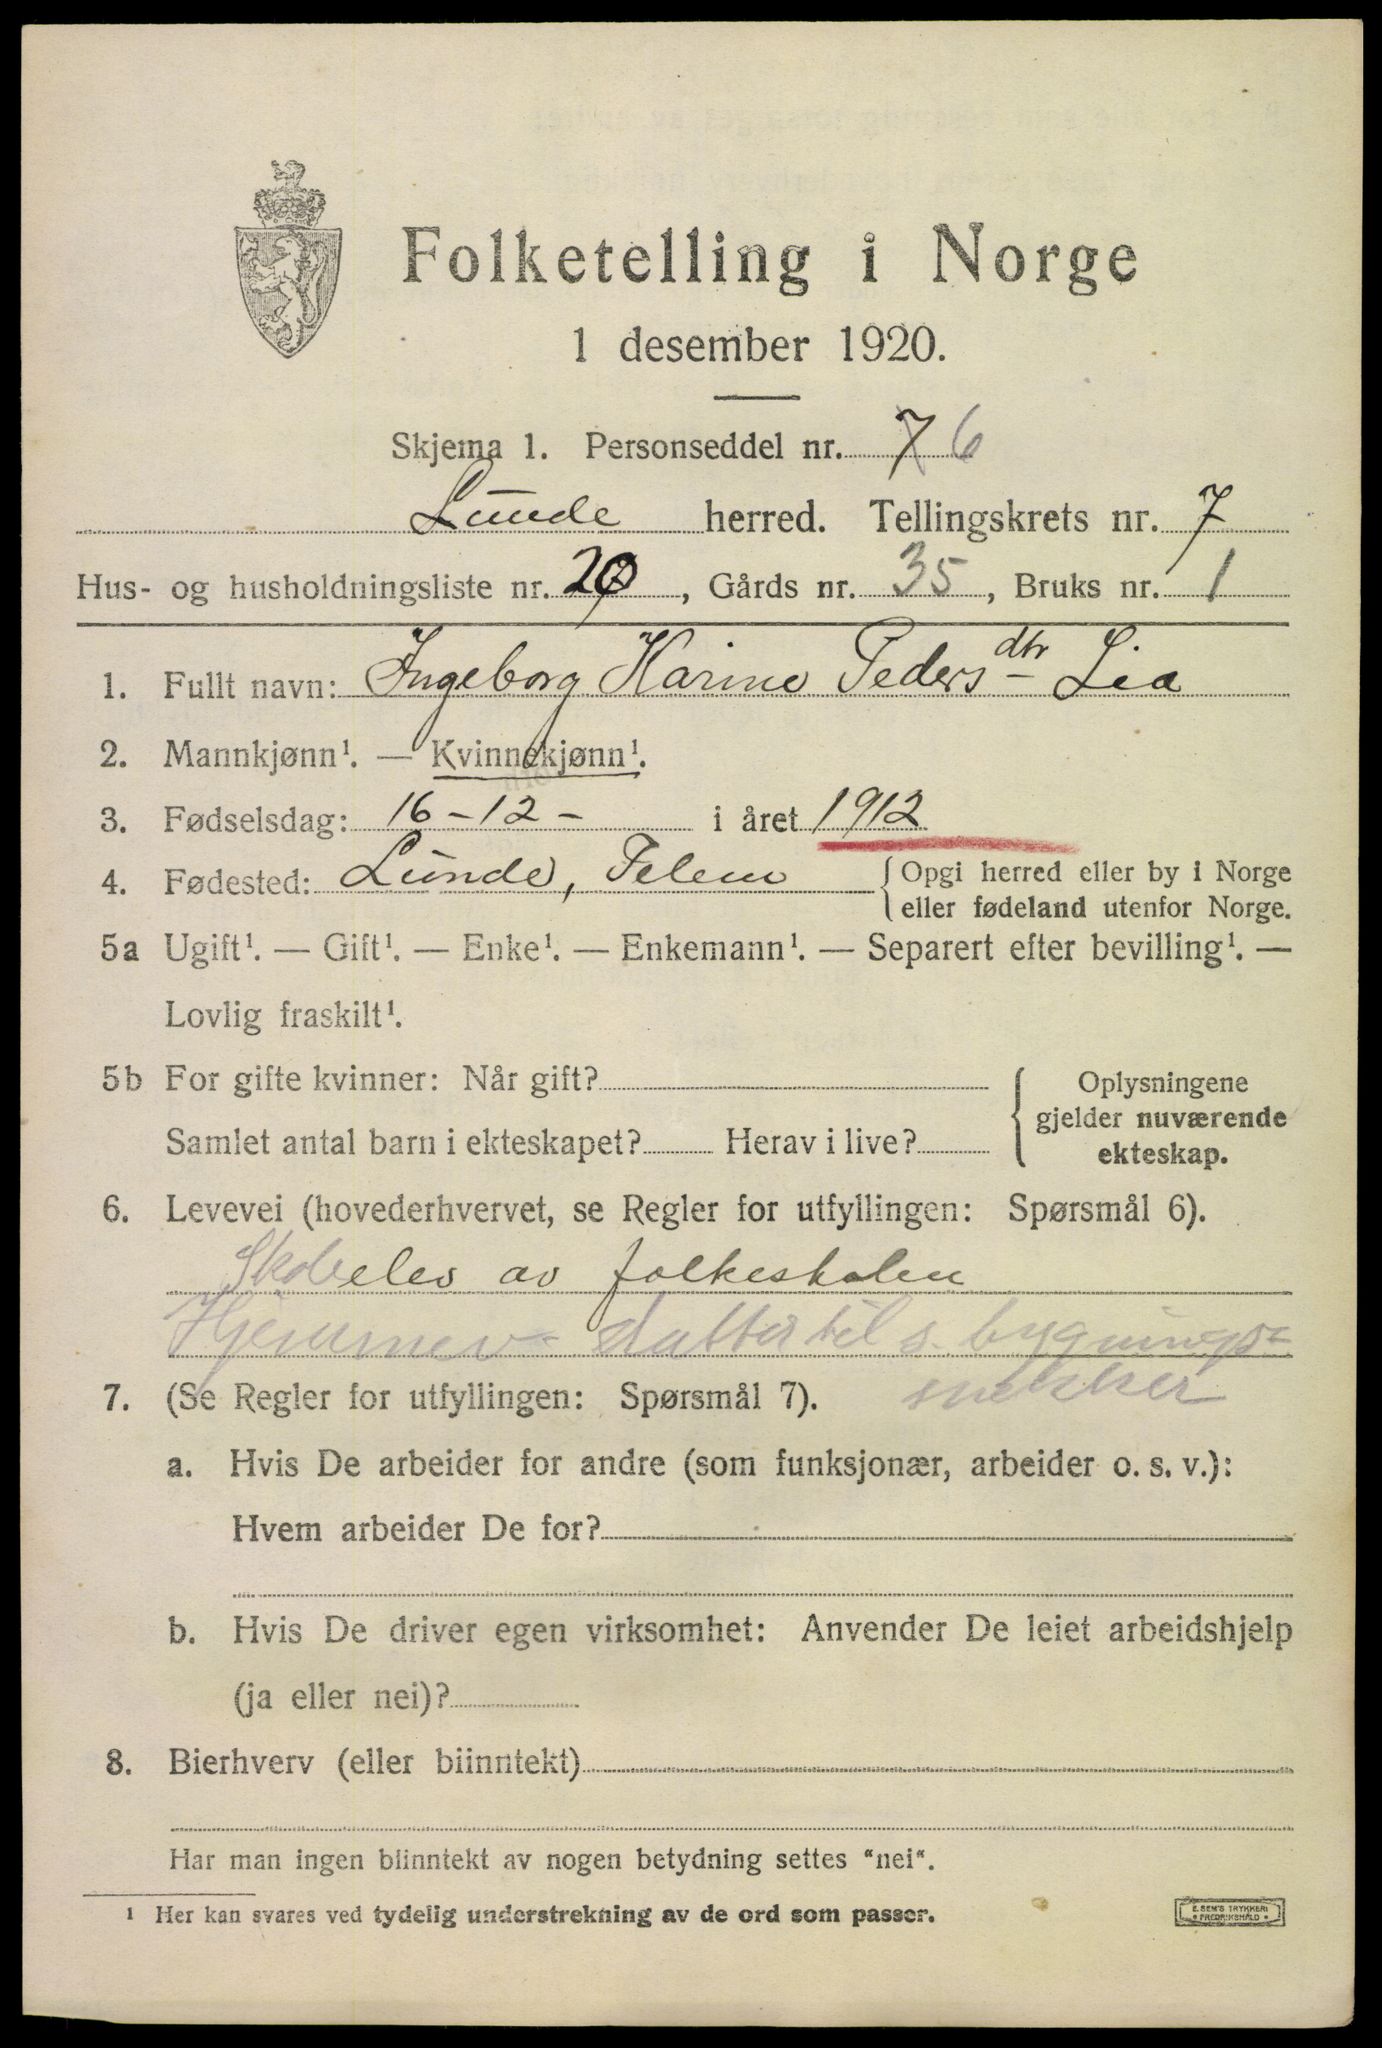 Folketelling i Norge
1 desember 1920.
Skjema 1. Personseddel nr. 7 6
Lunde herred. Tellingskrets nr. 7
Hus- og husholdningsliste nr. 20, Gårds nr. 35, Bruks nr. 1
1. Fullt navn: Ingeborg Karine Peders dtr Lia
2. Mannkjønn¹. — Kvinnekjønn¹.
3. Fødselsdag: 16-12- i året 1912
4. Fødested: Lunde, Telem {Opgi herred eller by i Norge
eller fødeland utenfor Norge.
5a Ugift¹. — Gift¹. — Enke¹. — Enkemann¹. — Separert efter bevilling¹. —
Lovlig fraskilt¹.
5b For gifte kvinner: Når gift?
Samlet antal barn i ekteskapet? Herav i live?
{Oplysningene
gjelder nuværende
ekteskap.
6. Levevei (hovederhvervet, se Regler for utfyllingen: Spørsmål 6).
Skoleelev av folkeskolen
Hjemmev- datter til s. bygnings=
snekker
7. (Se Regler for utfyllingen: Spørsmål 7).
a. Hvis De arbeider for andre (som funksjonær, arbeider o. s. v.):
Hvem arbeider De for?
b. Hvis De driver egen virksomhet: Anvender De leiet arbeidshjelp
(ja eller nei)?
8. Bierhverv (eller biinntekt)
Har man ingen biinntekt av nogen betydning settes "nei".
¹ Her kan svares ved tydelig understrekning av de ord som passer.
E. SEM'S TRYKKERI
FREDRIKSHALD